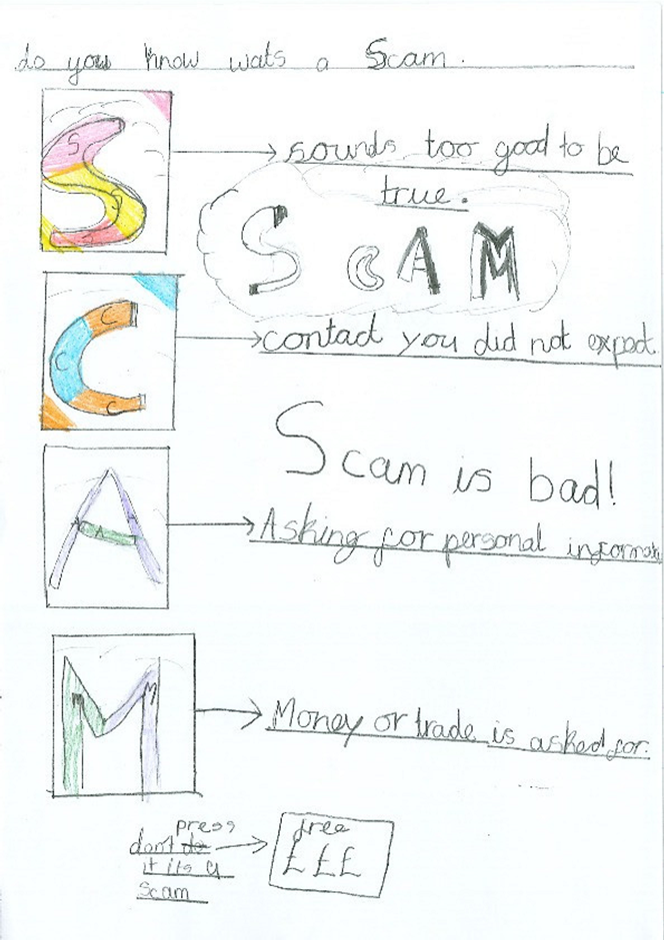 do you know wats a Scam.
S
sounds too good to be
true.
S
C
SCAM
C
contact you did not expect.
C
C
Scam is bad!
A
Asking for personal informati
A
M
Money or trade is asked for.
M
press
don't do
it its a
scam
free
£££